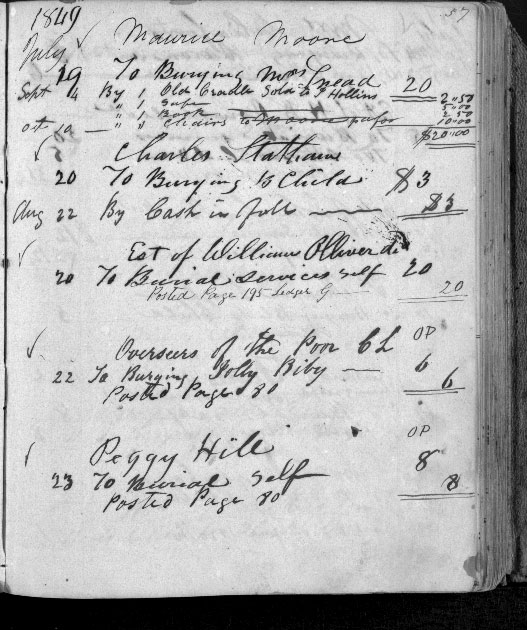 57
1849
July Maurice Moone
19 To Burying Mrs Snead 20
Sept 4 By 1 Old Cradle Sold to J Hollins 2"50
" 1 Safe 5"00
" 1 Book 2"50
Oct 10 — " " Chairs to Moone 10"00
$20"00
Charles Statham
20 To Burying B Child $3
Aug 22 By Cash in full — $3
Est of William Olliver
20 To Burial Services Self 20
20
Posted Page 195 Ledger G
OP
Overseers of the Poor CL
22 To Burying Polly Biby — 6
6
Posted Page 80
OP
Peggy Hill
8
23 To Burial Self 8
Posted Page 80